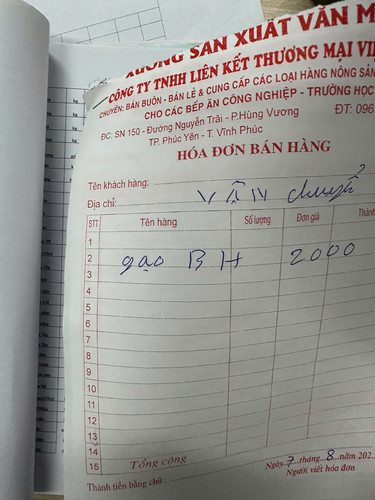 XƯỞNG SẢN XUẤT VĂN M
CÔNG TY TNHH LIÊN KẾT THƯƠNG MẠI VIỆ
CHUYÊN: BÁN BUÔN - BÁN LẺ & CUNG CẤP CÁC LOẠI HÀNG NÔNG SẢN
CHO CÁC BẾP ĂN CÔNG NGHIỆP - TRƯỜNG HỌC
ĐC: SN 150 - Đường Nguyễn Trãi - P.Hùng Vương ĐT: 096
TP. Phúc Yên - T. Vĩnh Phúc
HÓA ĐƠN BÁN HÀNG
Tên khách hàng:
Địa chỉ: VẬN chuyển
STT Tên hàng Số lượng Đơn giá Thành
1
2 gạo BH 2000
3
4
5
6
7
8
9
10
11
12
13
14
15 Tổng cộng
Ngày 7 tháng 8 năm 202
Thành tiền bằng chữ : Người viết hóa đơn